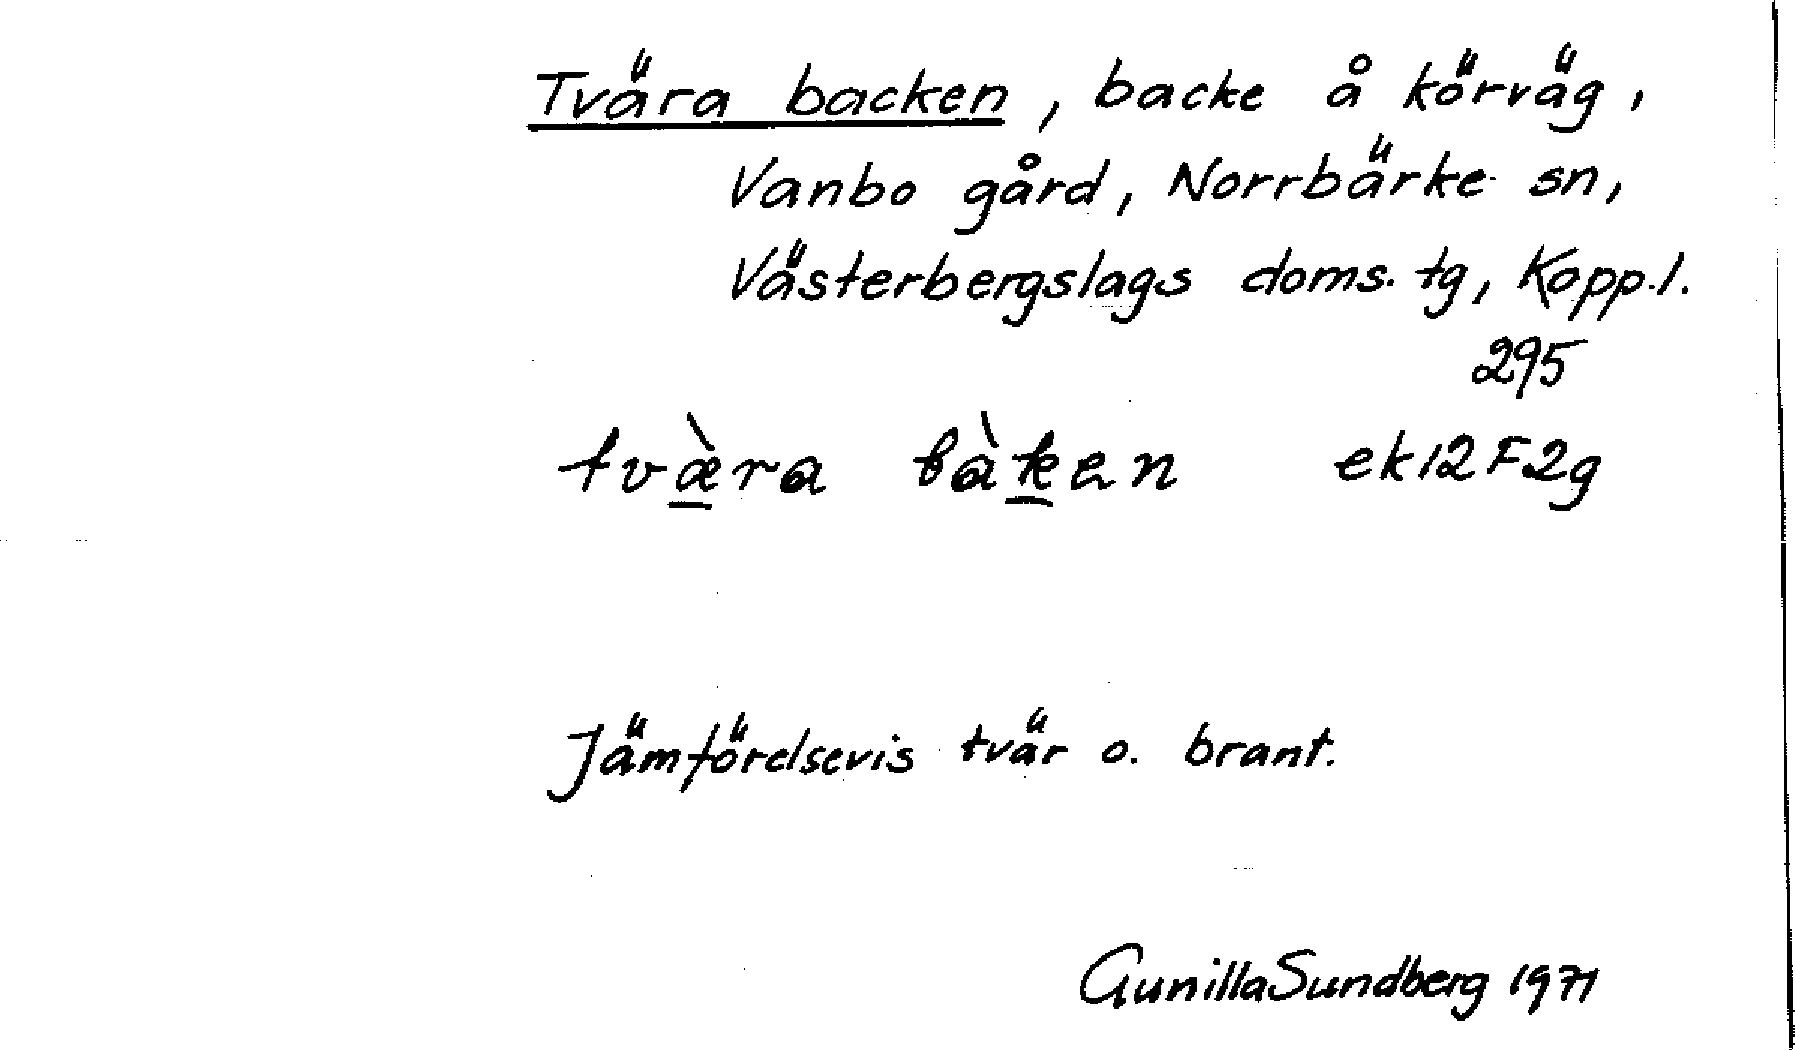 Tvära backen, backe å körväg,
Vanbo gård, Norrbärke sn,
Västerbergslags doms. tg, Kopp.l.
295
tvæ̀ra bàken ek12F2g
Jämförelsevis tvär o. brant.
Gunilla Sundberg 1971